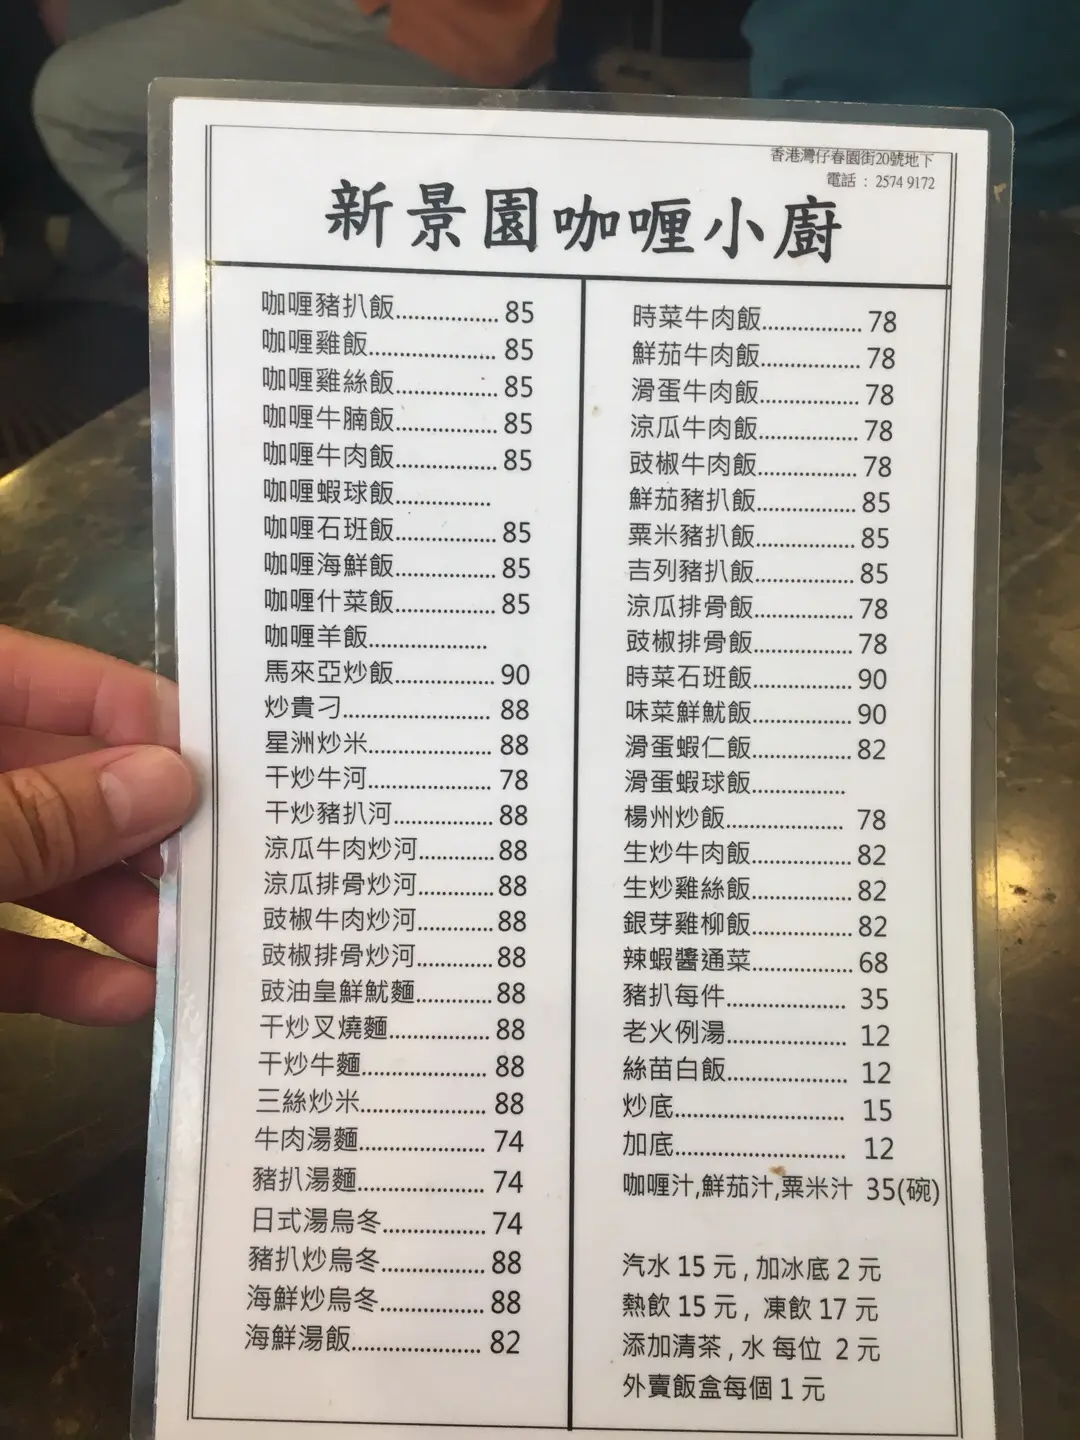 香港灣仔春園街20號地下
電話 : 2574 9172
新景園咖喱小廚
咖喱豬扒飯.................. 85
咖喱雞飯...................... 85
咖喱雞絲飯.................. 85
咖喱牛腩飯.................. 85
咖喱牛肉飯.................. 85
咖喱蝦球飯..................
咖喱石班飯.................. 85
咖喱海鮮飯.................. 85
咖喱什菜飯.................. 85
咖喱羊飯......................
馬來亞炒飯.................. 90
炒貴刁.......................... 88
星洲炒米...................... 88
干炒牛河...................... 78
干炒豬扒河.................. 88
涼瓜牛肉炒河.............. 88
涼瓜排骨炒河.............. 88
豉椒牛肉炒河.............. 88
豉椒排骨炒河.............. 88
豉油皇鮮魷麵.............. 88
干炒叉燒麵.................. 88
干炒牛麵...................... 88
三絲炒米...................... 88
牛肉湯麵...................... 74
豬扒湯麵...................... 74
日式湯烏冬.................. 74
豬扒炒烏冬.................. 88
海鮮炒烏冬.................. 88
海鮮湯飯....................... 82
時菜牛肉飯.................. 78
鮮茄牛肉飯.................. 78
滑蛋牛肉飯.................. 78
涼瓜牛肉飯.................. 78
豉椒牛肉飯.................. 78
鮮茄豬扒飯.................. 85
粟米豬扒飯.................. 85
吉列豬扒飯.................. 85
涼瓜排骨飯.................. 78
豉椒排骨飯.................. 78
時菜石班飯.................. 90
味菜鮮魷飯.................. 90
滑蛋蝦仁飯.................. 82
滑蛋蝦球飯.................
楊州炒飯..................... 78
生炒牛肉飯.................. 82
生炒雞絲飯.................. 82
銀芽雞柳飯.................. 82
辣蝦醬通菜.................. 68
豬扒每件..................... 35
老火例湯..................... 12
絲苗白飯..................... 12
炒底.............................. 15
加底.............................. 12
咖喱汁,鮮茄汁,粟米汁 35(碗)
汽水 15 元 , 加冰底 2 元
熱飲 15 元 , 凍飲 17 元
添加清茶 , 水 每位 2 元
外賣飯盒每個 1 元